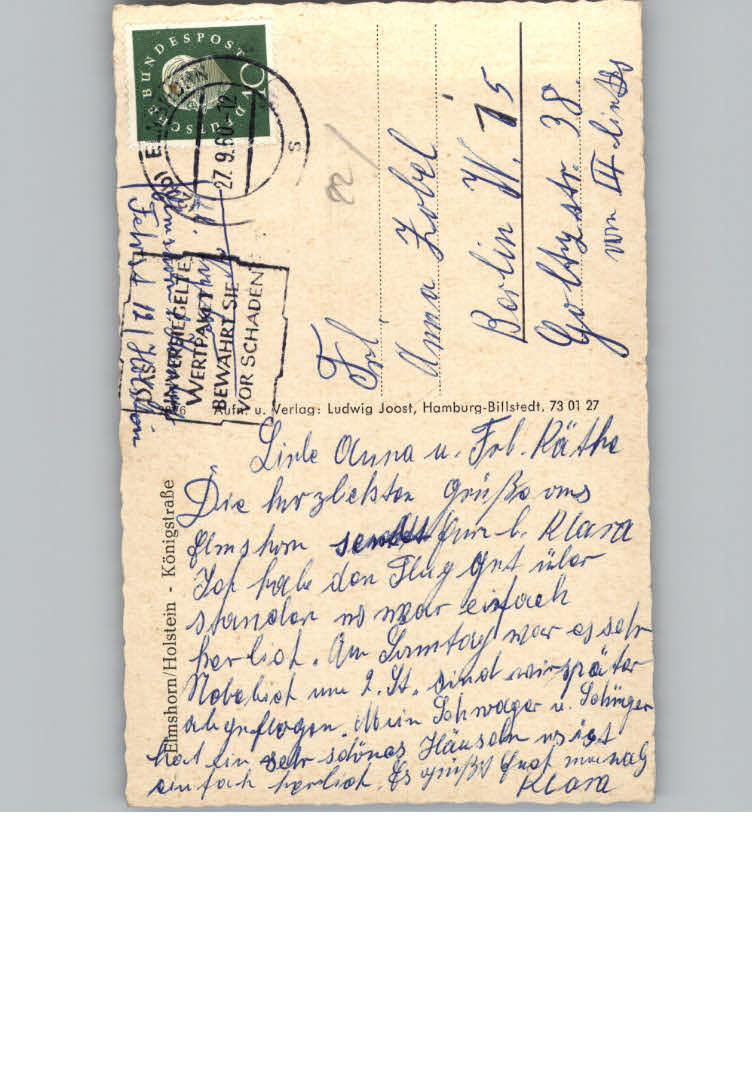 DEUTSCHE BUNDESPOST
27.9.60-12
s
DAS
UNVERSIEGELTE
WERTPAKET
BEWAHRT SIE
VOR SCHADEN
Frl.
Anna Zobel
Berlin W. 15
Goltzstr. 38
vorn II links
22/
Aufn. u. Verlag: Ludwig Joost, Hamburg-Billstedt, 73 01 27
Elmshorn/Holstein - Königstraße
Liebe Anna u. Frl. Käthe
Die herzlichsten Grüße aus
Elmshorn sendet Eure l. Klara
Ich habe den Flug gut über
standen es war einfach
herlich. Am Sonntag war es sehr
Nebelich um 2. St. sind wir später
abgeflogen. Mein Schwager u. Schwieger
hat ein sehr schönes Häuschen es ist
einfach herlich. Es grüßt Euch
Klara